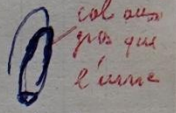 col aussi
gros que
l'urne